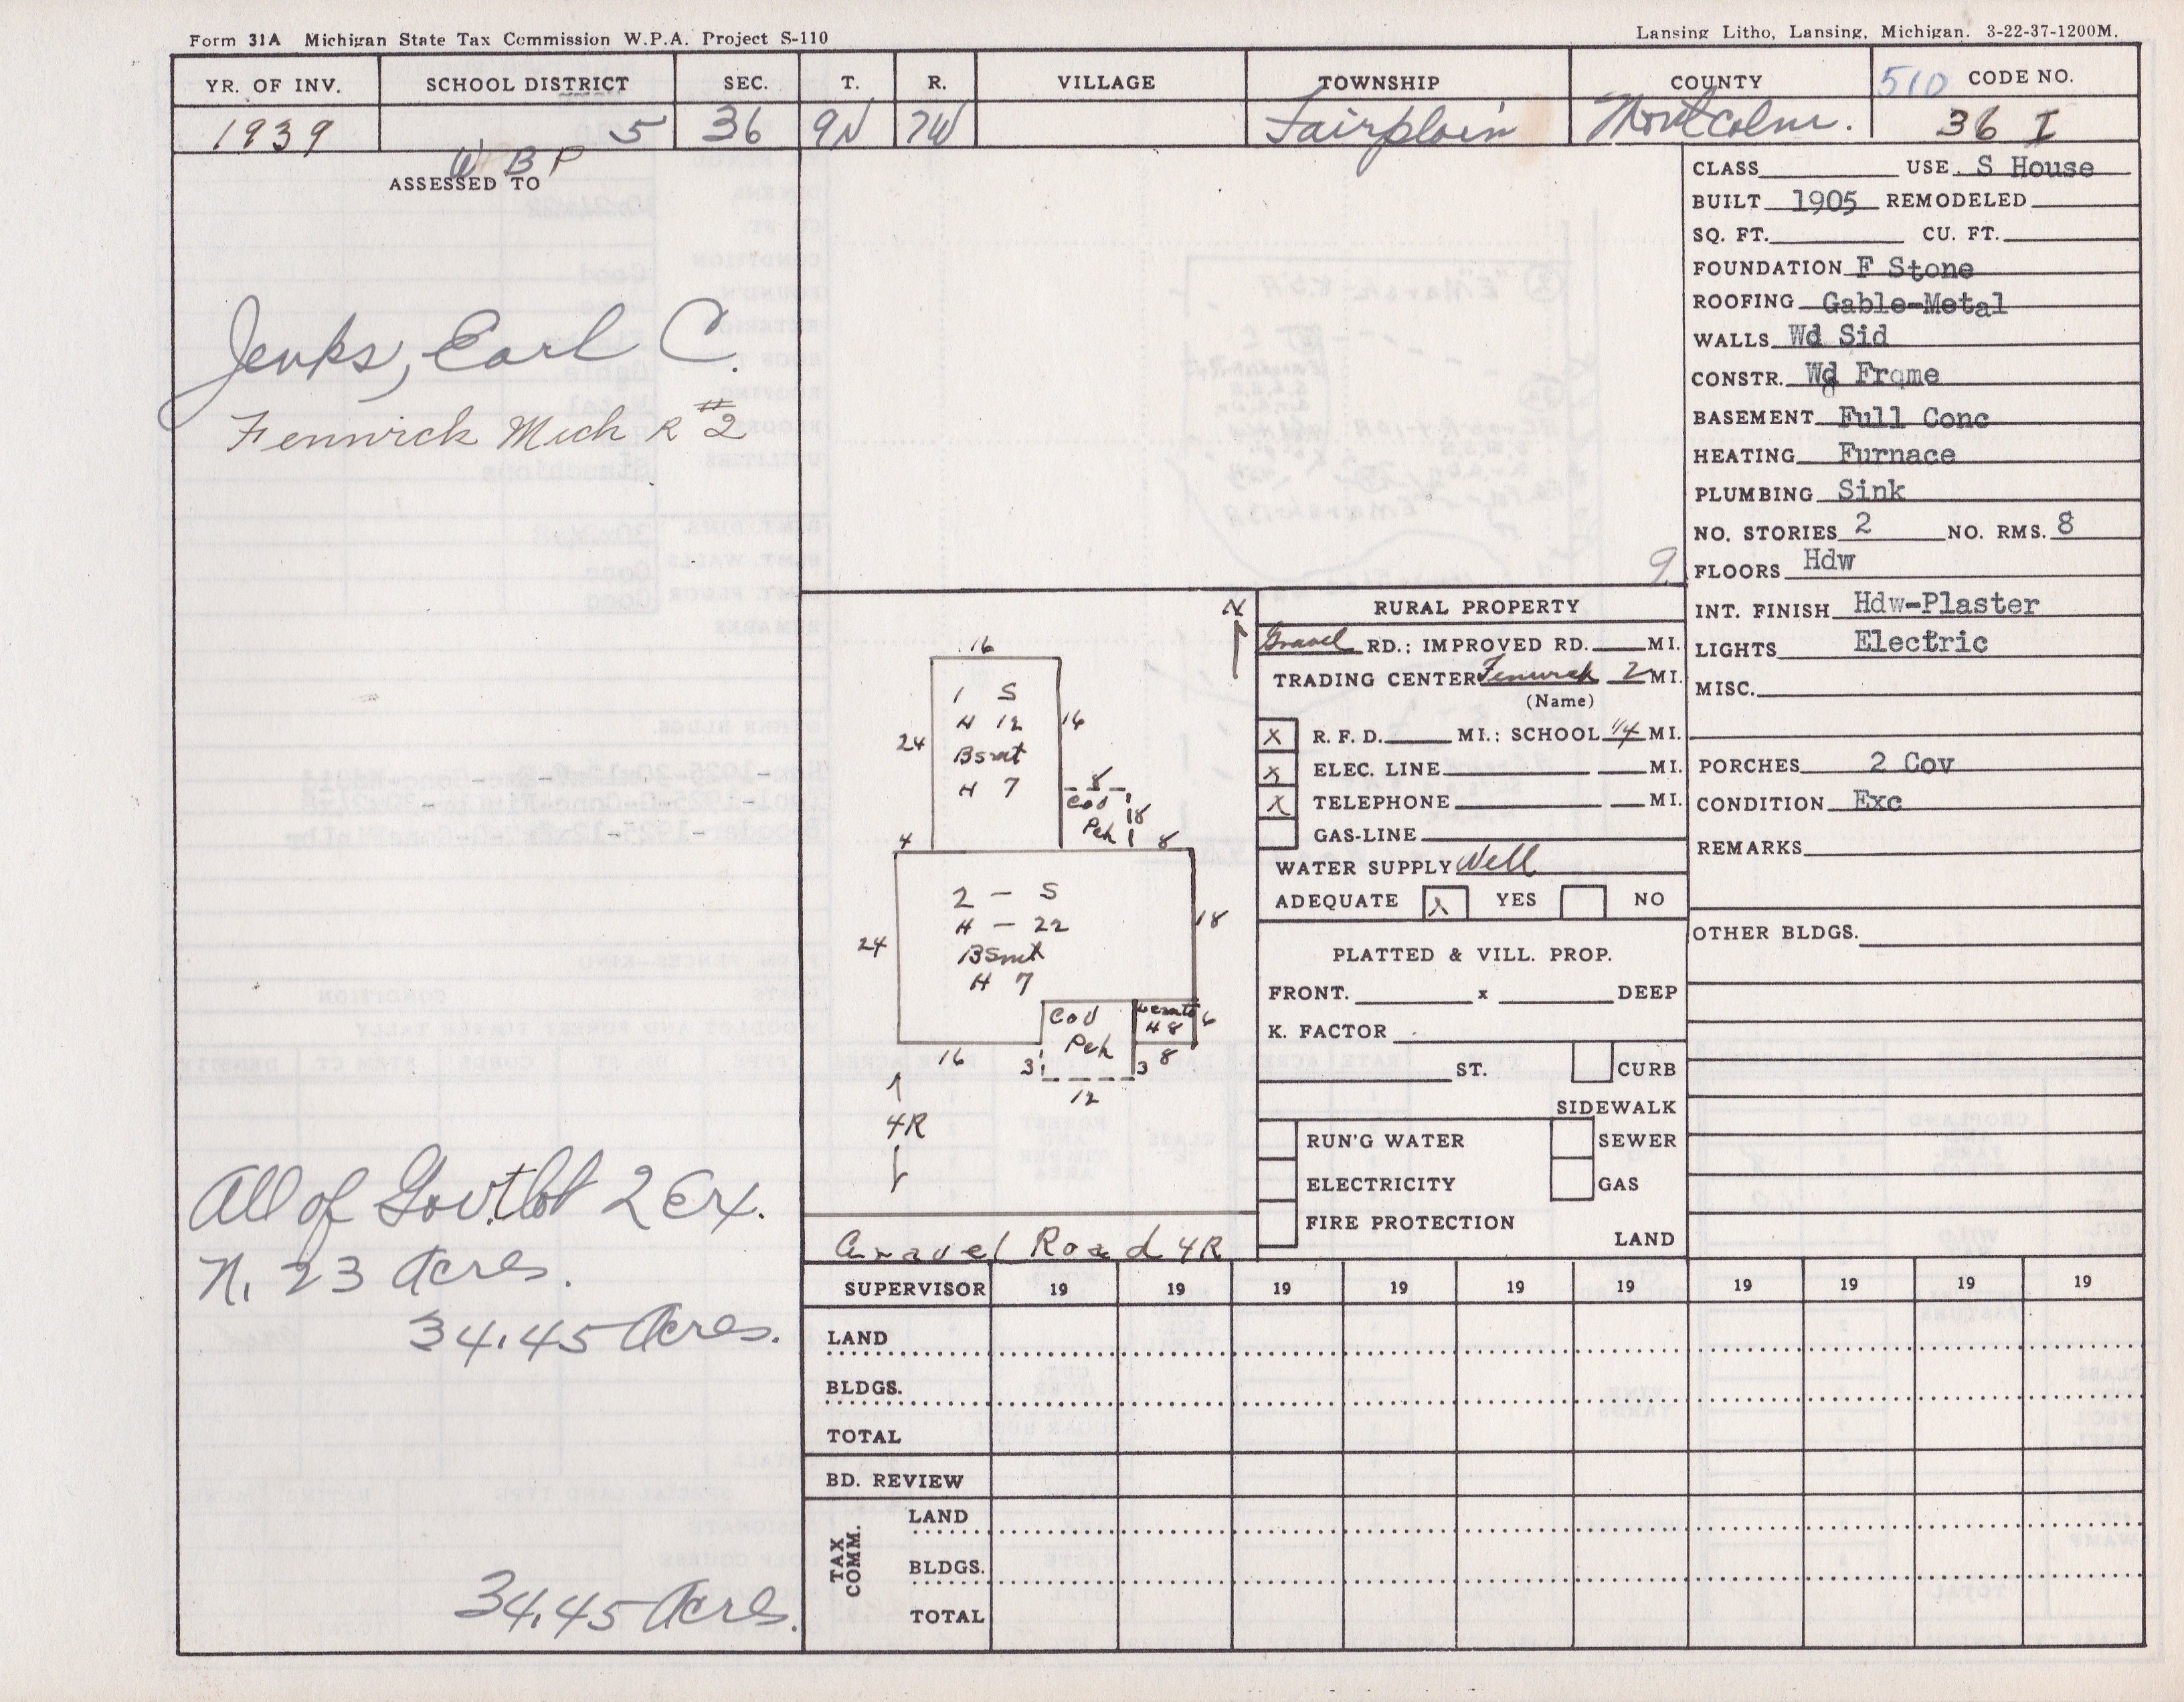 Form 31A Michigan State Tax Commission W.P.A. Project S-110
Lansing Litho, Lansing, Michigan. 3-22-37-1200M.
YR. OF INV. SCHOOL DISTRICT SEC. T. R. VILLAGE TOWNSHIP COUNTY 510 CODE NO.
1939 5 36 9N 7W Fairplain Montcalm. 36 I
W B P
ASSESSED TO
Jenks, Earl C.
Fenwick Mich R #2
All of Gov't. lot 2 Ex.
N. 23 Acres.
34.45 Acres.
34.45 Acres.
9
N
16
1 S
H 12
Bsmt
H 7
24
16
8
Cov
Pch
18
4
8
2 - S
H - 22
BSmt
H 7
24
18
Cov
Pch
H 8
6
16
3
3
8
12
4R
Gravel Road 4R
RURAL PROPERTY
Gravel RD.; IMPROVED RD. MI.
TRADING CENTER Fenwick 2 MI.
(Name)
X R. F. D. MI.; SCHOOL 1/4 MI.
X ELEC. LINE MI.
X TELEPHONE MI.
GAS-LINE
WATER SUPPLY Well
ADEQUATE X YES NO
PLATTED & VILL. PROP.
FRONT. x DEEP
K. FACTOR
ST. CURB
SIDEWALK
RUN'G WATER SEWER
ELECTRICITY GAS
FIRE PROTECTION
LAND
CLASS USE S House
BUILT 1905 REMODELED
SQ. FT. CU. FT.
FOUNDATION F Stone
ROOFING Gable-Metal
WALLS Wd Sid
CONSTR. Wd Frame
BASEMENT Full Conc
HEATING Furnace
PLUMBING Sink
NO. STORIES 2 NO. RMS. 8
FLOORS Hdw
INT. FINISH Hdw-Plaster
LIGHTS Electric
MISC.
PORCHES 2 Cov
CONDITION Exc
REMARKS
OTHER BLDGS.
SUPERVISOR 19 19 19 19 19 19 19 19 19 19
LAND
BLDGS.
TOTAL
BD. REVIEW
TAX COMM.
LAND
BLDGS.
TOTAL